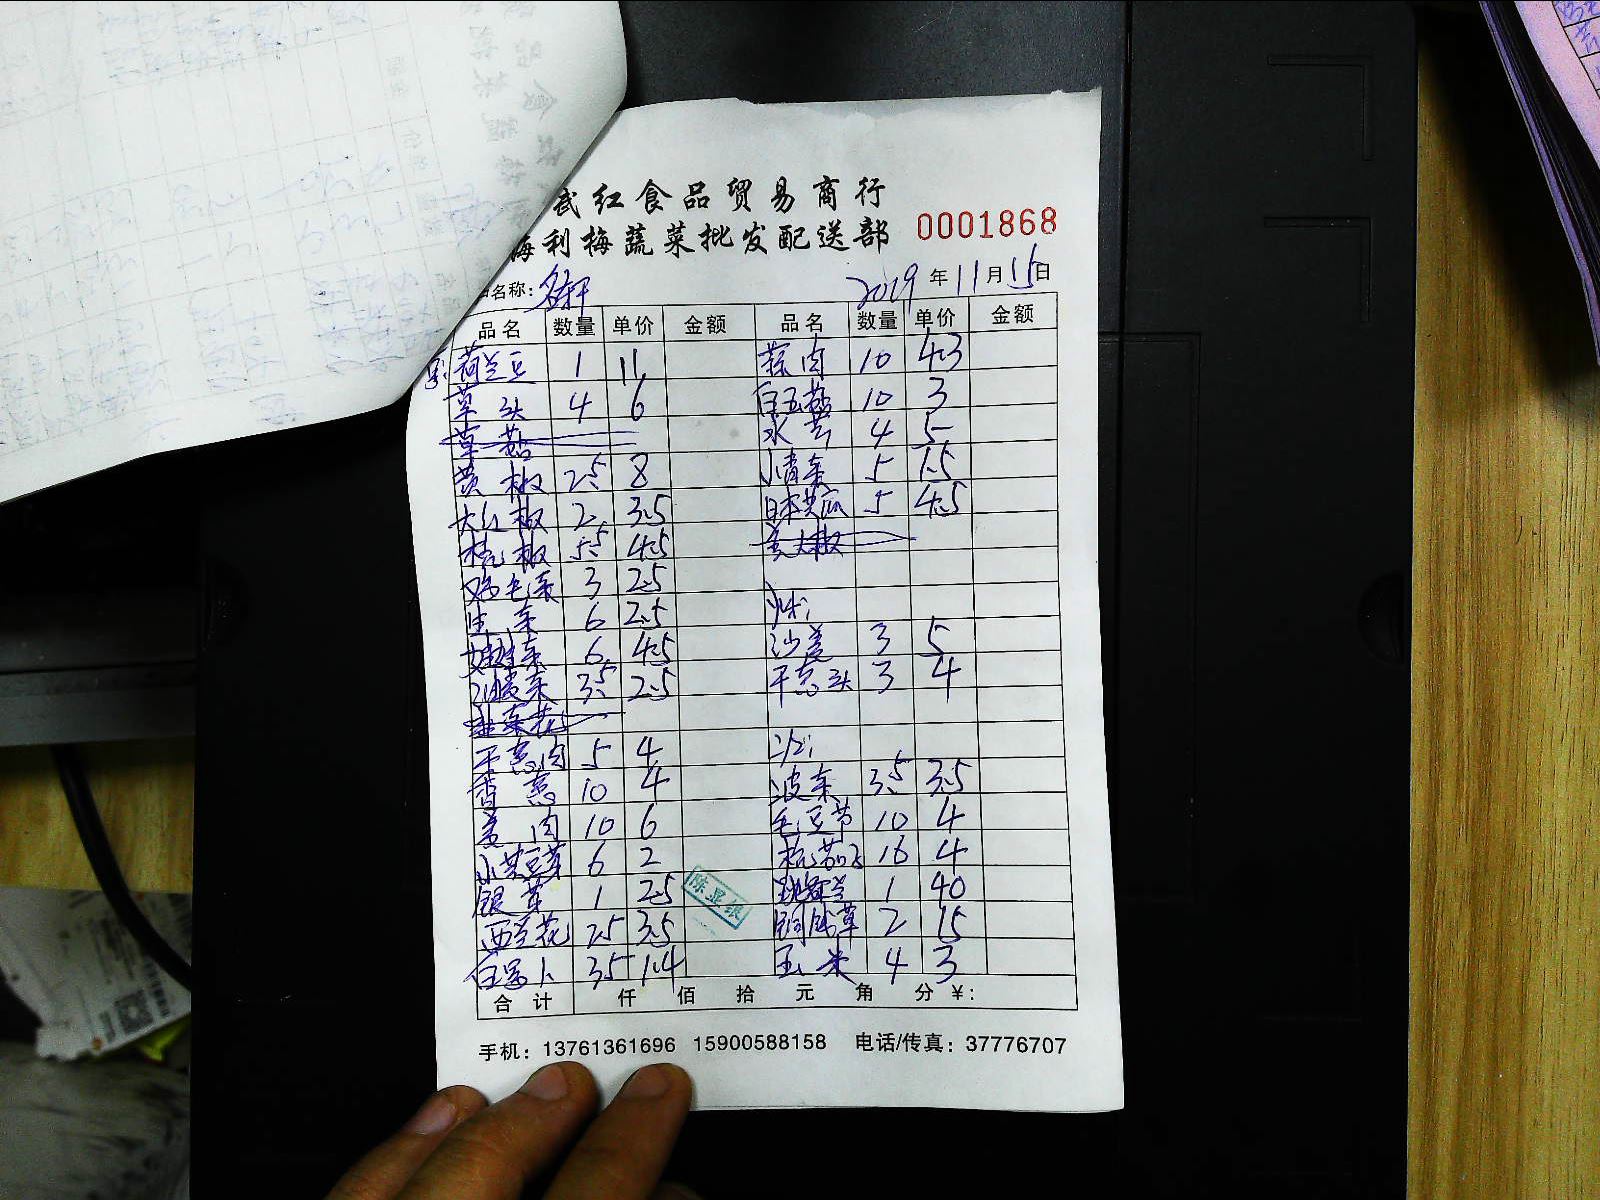 武红食品贸易商行
海利梅蔬菜批发配送部 0001868
名称: 名轩 2019年11月15日
品名 数量 单价 金额 品名 数量 单价 金额
荷兰豆 1 11 蒜肉 10 4.3
草头 4 6 白玉菇 10 3
草菇 水芹 4 5
黄椒 2.5 8 小青菜 5 1.5
大红椒 2 3.5 日本黄瓜 5 4.5
杭椒 5.5 4.5 美人椒
鸡毛菜 3 2.5
生菜 6 2.5
娃娃菜 6 4.5 沙姜 3 5
3.5 2.5 干葱头 3 4
韭菜花
干葱肉 5 4
香葱 10 4 波菜 3.5 3.5
姜肉 10 6 毛豆节 10 4
小黄豆芽 6 2 杭茄子 16 4
银芽 1 2.5 1 40
西兰花 25 3.5 铜钱草 2 15
白萝卜 35 1.4 玉米 4 3
陈显银
合计 仟 佰 拾 元 角 分 ¥:
手机: 13761361696 15900588158 电话/传真: 37776707